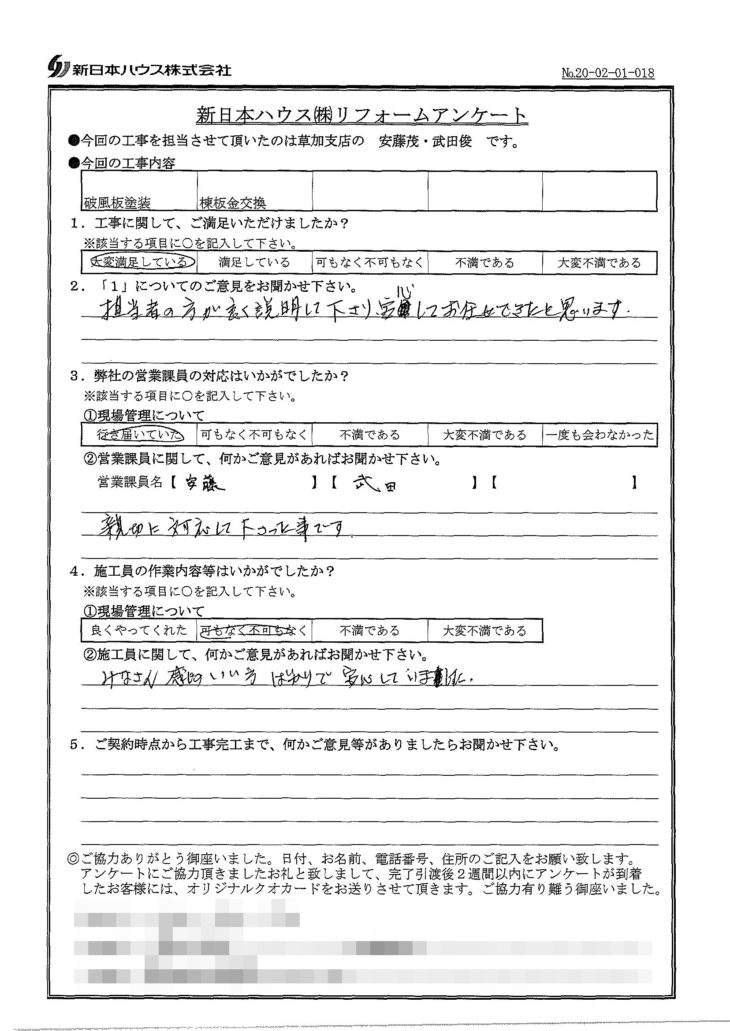 新日本ハウス株式会社
No.20-02-01-018
新日本ハウス㈱リフォームアンケート
●今回の工事を担当させて頂いたのは草加支店の 安藤茂・武田俊 です。
●今回の工事内容
破風板塗装 棟板金交換
1．工事に関して、ご満足いただけましたか？
※該当する項目に○を記入して下さい。
大変満足している 満足している 可もなく不可もなく 不満である 大変不満である
2．「1」についてのご意見をお聞かせ下さい。
担当者の方が良く説明して下さり、安心してお任せできたと思います．
3．弊社の営業課員の対応はいかがでしたか？
※該当する項目に○を記入して下さい。
①現場管理について
行き届いていた 可もなく不可もなく 不満である 大変不満である 一度も会わなかった
②営業課員に関して、何かご意見があればお聞かせ下さい。
営業課員名【 安藤 】【 武田 】【 】
親切に対応して下さった事です．
4．施工員の作業内容等はいかがでしたか？
※該当する項目に○を記入して下さい。
①現場管理について
良くやってくれた 可もなく不可もなく 不満である 大変不満である
②施工員に関して、何かご意見があればお聞かせ下さい。
みなさん 感じのいい方 ばかりで 安心していました．
5．ご契約時点から工事完工まで、何かご意見等がありましたらお聞かせ下さい。
◎ご協力ありがとう御座いました。日付、お名前、電話番号、住所のご記入をお願い致します。
アンケートにご協力頂きましたお礼と致しまして、完了引渡後２週間以内にアンケートが到着
したお客様には、オリジナルクオカードをお送りさせて頂きます。ご協力有り難う御座いました。